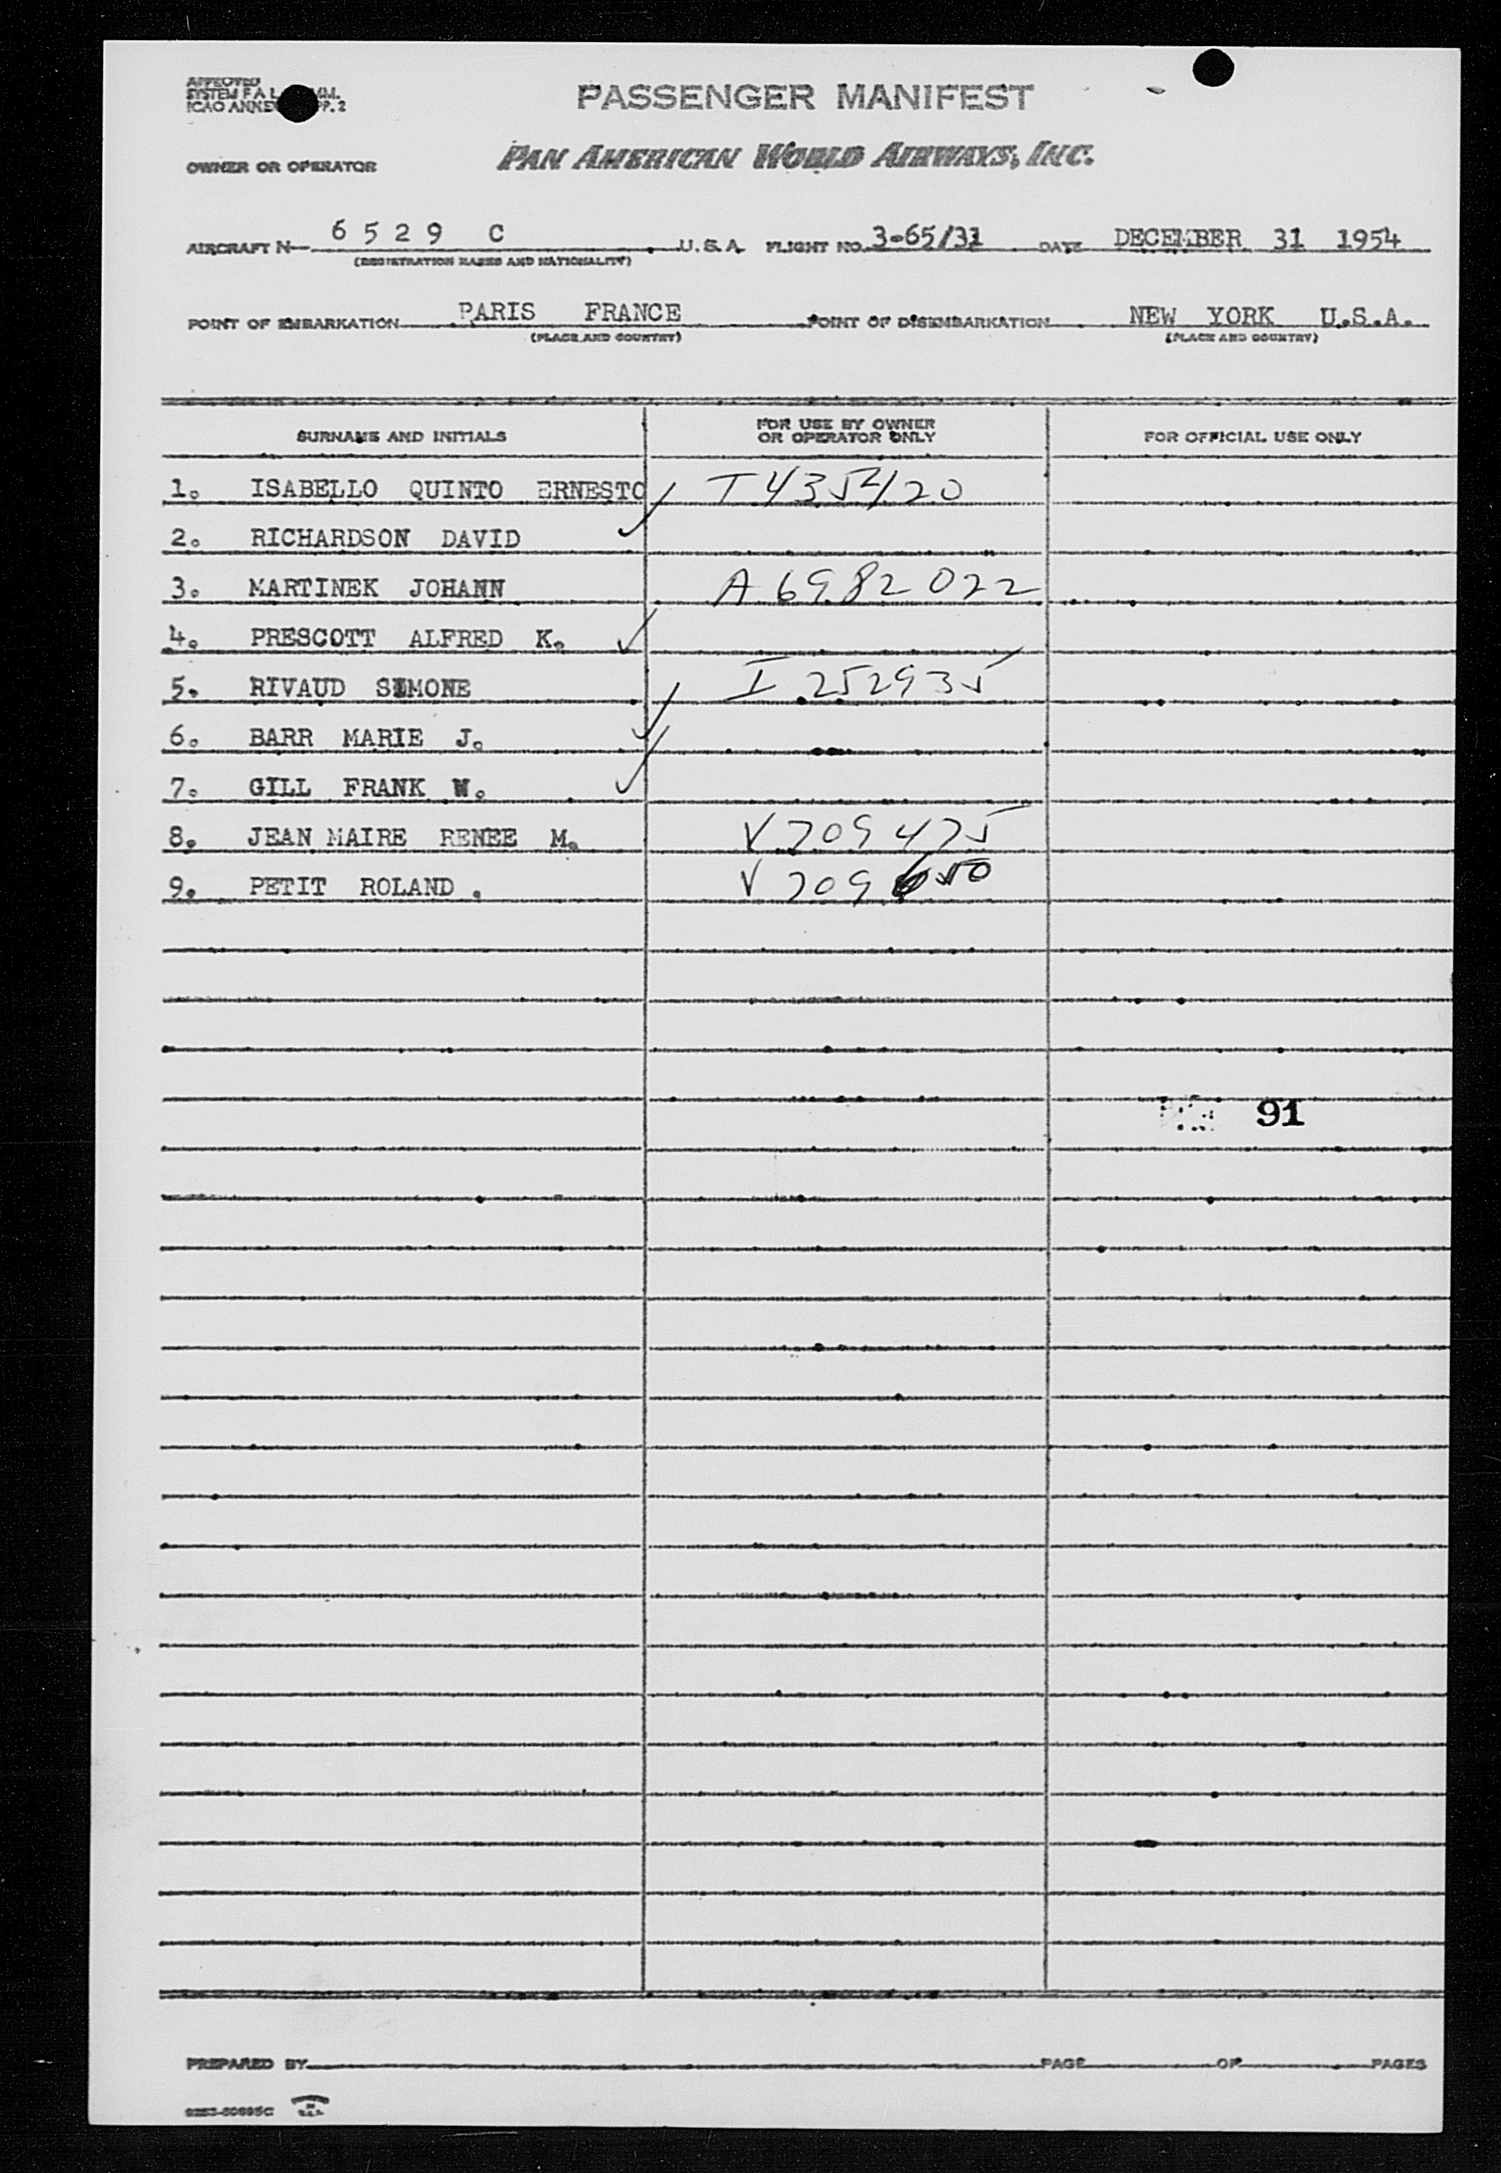 APPROVED
SYSTEM F A L
ICAO ANNEX PP. 2
PASSENGER MANIFEST
OWNER OR OPERATOR PAN AMERICAN WORLD AIRWAYS, INC.
AIRCRAFT N— 6 5 2 9 C U. S. A. FLIGHT NO. 3-65/31 DATE DECEMBER 31 1954
(REGISTRATION MARKS AND NATIONALITY)
POINT OF EMBARKATION PARIS FRANCE POINT OF DISEMBARKATION NEW YORK U.S.A.
(PLACE AND COUNTRY) (PLACE AND COUNTRY)
SURNAME AND INITIALS FOR USE BY OWNER OR OPERATOR ONLY FOR OFFICIAL USE ONLY
1. ISABELLO QUINTO ERNESTO T 435420
2. RICHARDSON DAVID ✓
3. MARTINEK JOHANN A 6982 022
4. PRESCOTT ALFRED K. ✓
5. RIVAUD SIMONE I 252935
6. BARR MARIE J. ✓
7. GILL FRANK W. ✓
8. JEAN MAIRE RENEE M. V 709 475
9. PETIT ROLAND . V 709 650
91
PREPARED BY PAGE OF PAGES